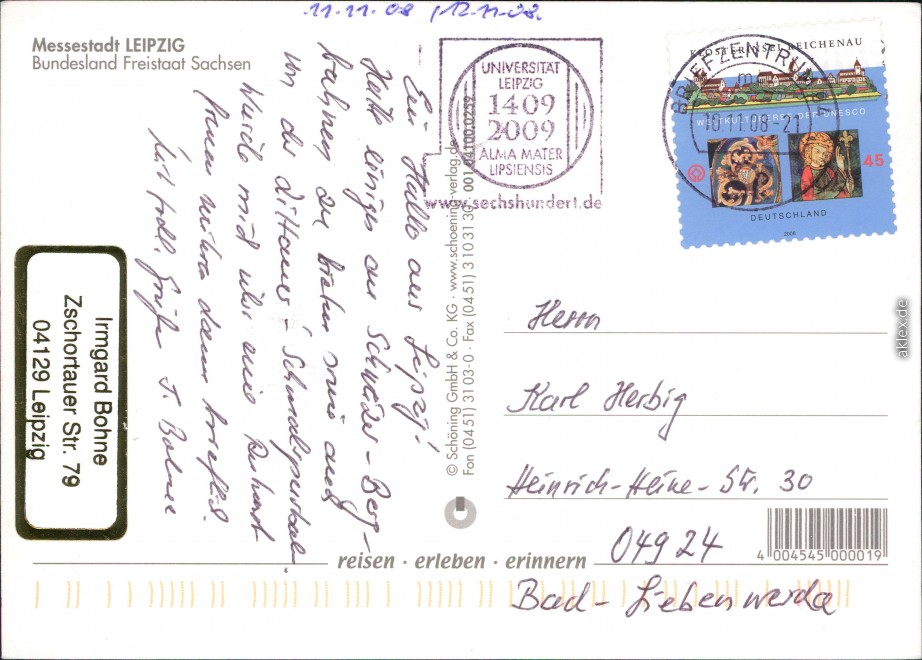 11.11.08 / 12.11.08.
Messestadt LEIPZIG
Bundesland Freistaat Sachsen
Ein Hallo aus Leipzig!
Heute einiges zur Schweizer-Berg-
bahnen zu bieten sowie auch
von der Zittauer-Schmalspurbahn.
Werde mich über eine Antwort
freuen
Mit frdl. Grüßen I. Bohne
Irmgard Bohne
Zschortauer Str. 79
04129 Leipzig
© Schöning GmbH & Co. KG · www.schoening-verlag.de
Fon (04 51) 31 03-0 · Fax (04 51) 3 10 31 30 001 04100 0259
reisen · erleben · erinnern
UNIVERSITÄT
LEIPZIG
1409
2009
ALMA MATER
LIPSIENSIS
www.sechshundert.de
BRIEFZENTRUM
10.11.08-21
KLOSTERINSEL REICHENAU
WELTKULTURERBE DER UNESCO
45
DEUTSCHLAND
2008
Herrn
Karl Herbig
Heinrich-Heine-Str. 30
04924
Bad-Liebenwerda
4 004545 000019
aklex.de